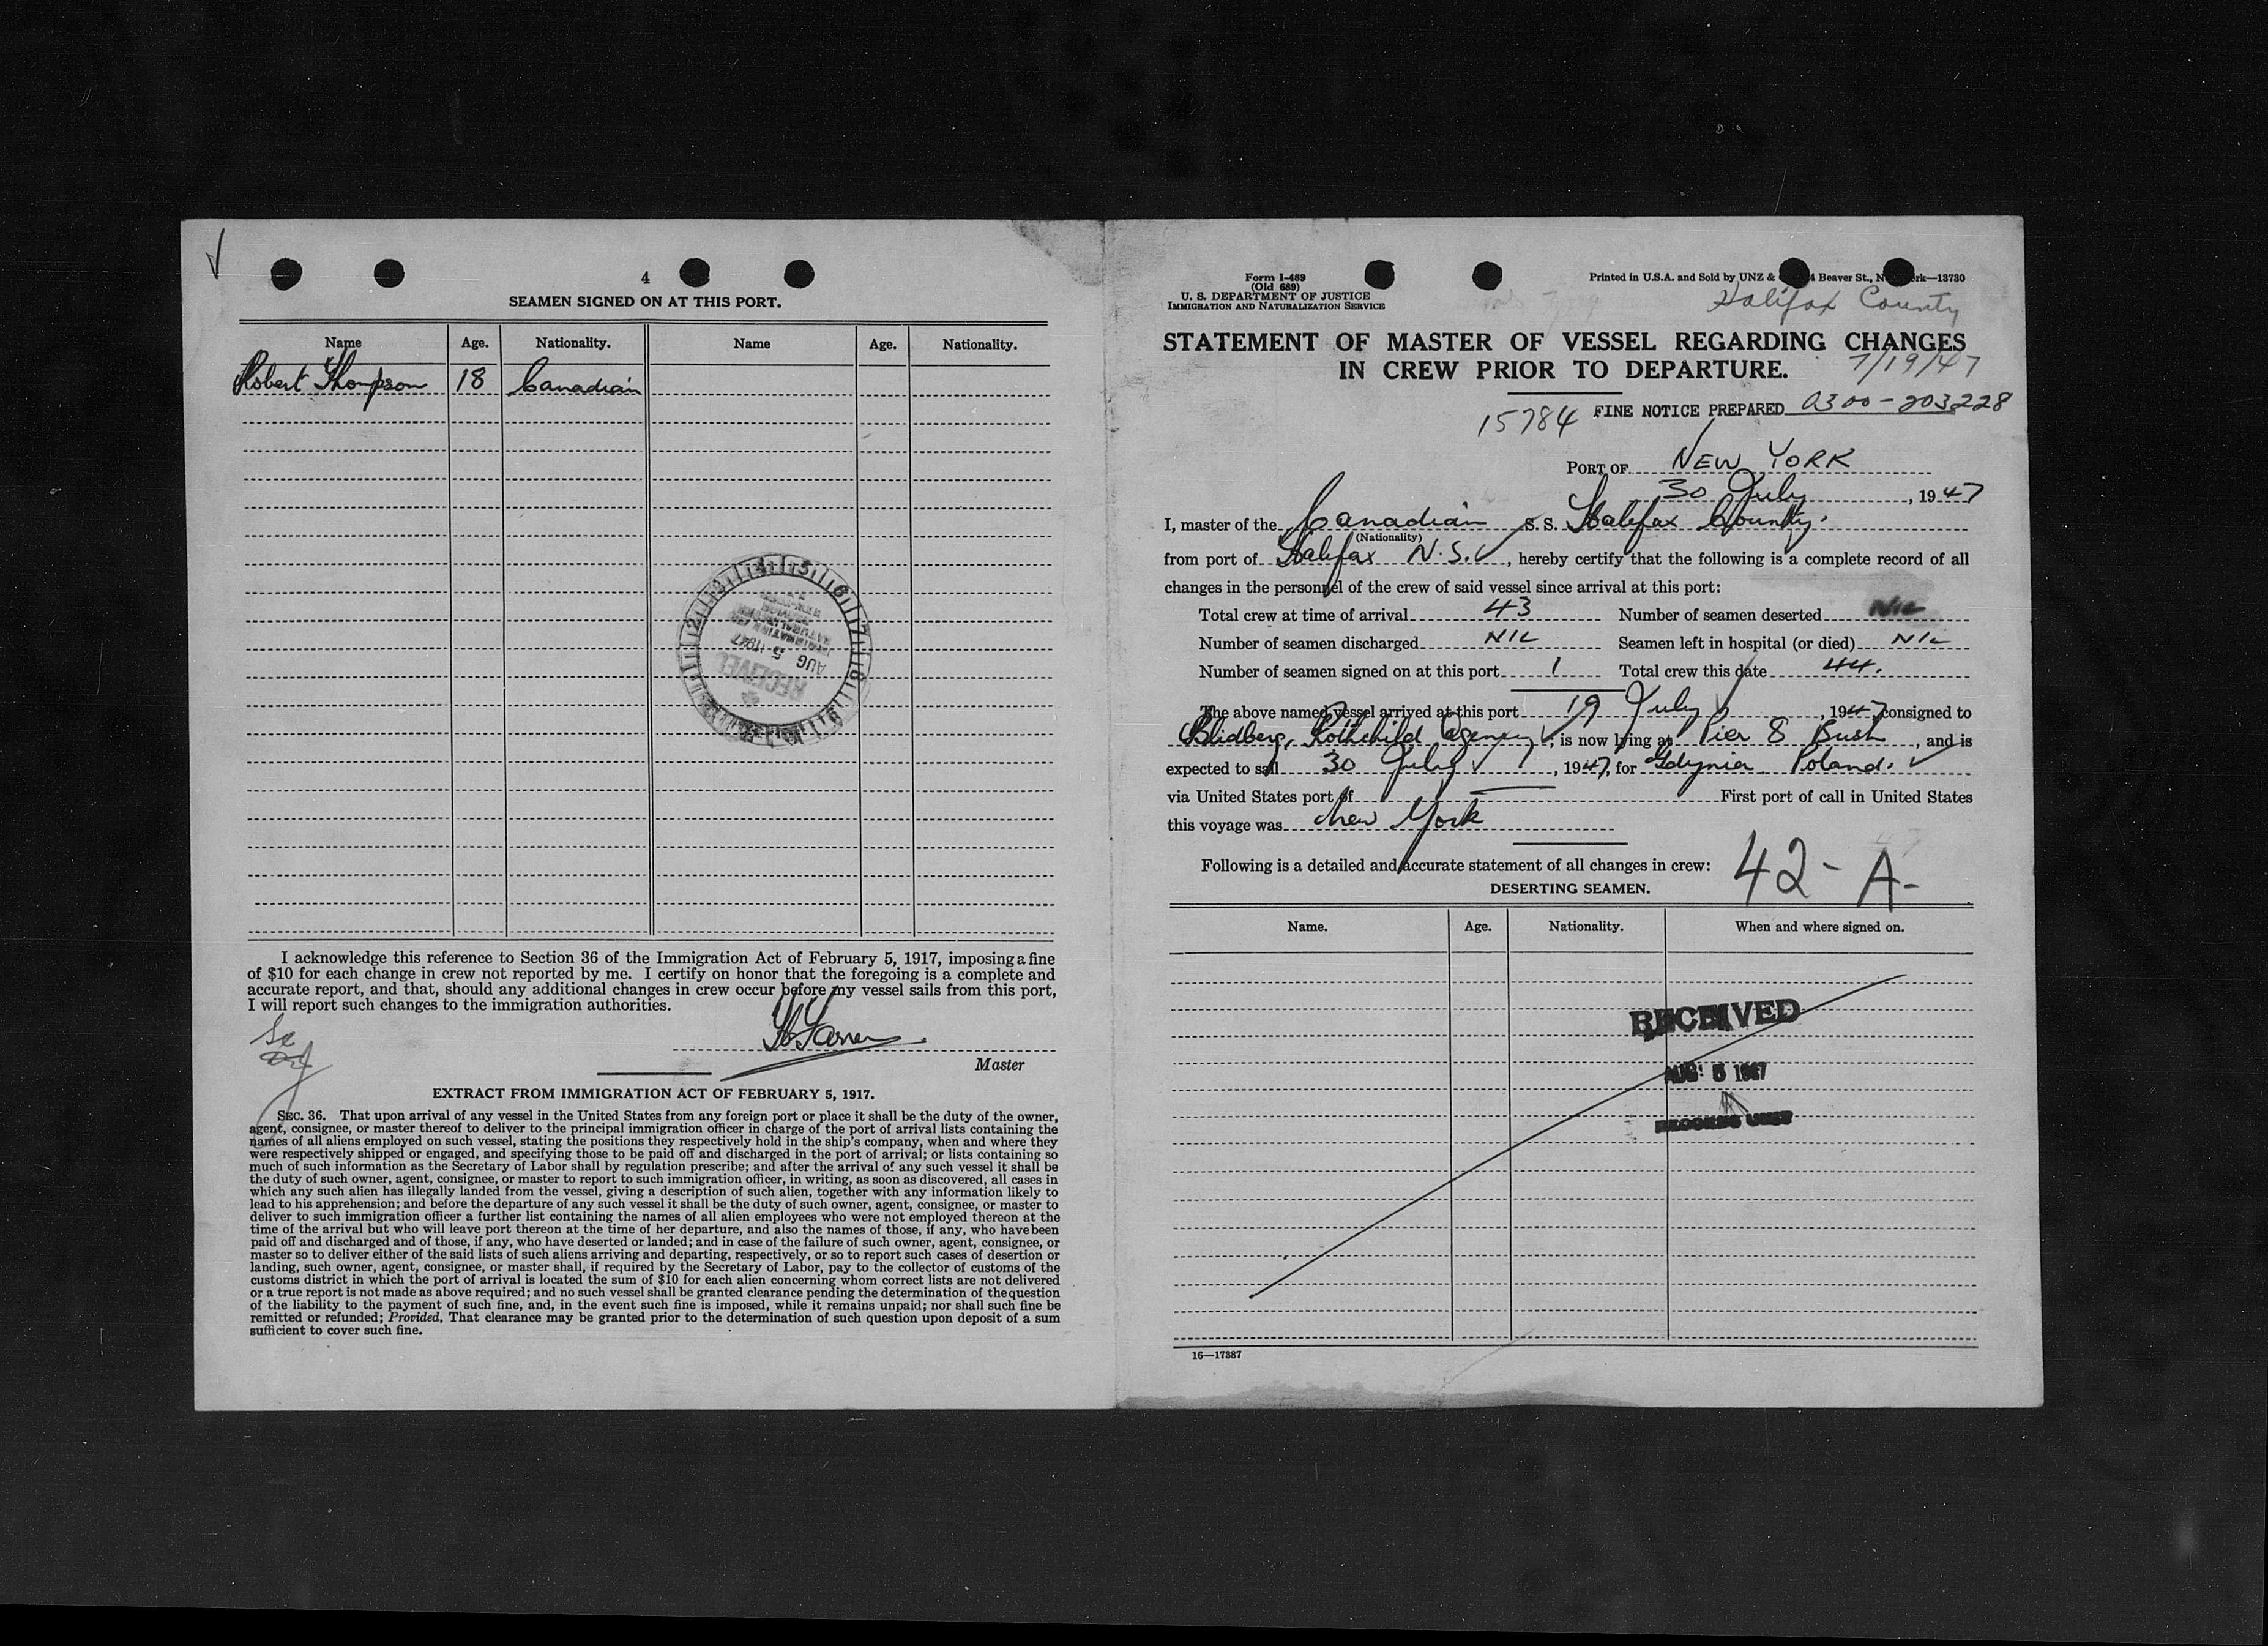 4
SEAMEN SIGNED ON AT THIS PORT.
Name Age. Nationality. Name Age. Nationality.
Robert Thompson 18 Canadian
RECEIVED
AUG 5 1947
I acknowledge this reference to Section 36 of the Immigration Act of February 5, 1917, imposing a fine
of $10 for each change in crew not reported by me. I certify on honor that the foregoing is a complete and
accurate report, and that, should any additional changes in crew occur before my vessel sails from this port,
I will report such changes to the immigration authorities.
Master
EXTRACT FROM IMMIGRATION ACT OF FEBRUARY 5, 1917.
SEC. 36. That upon arrival of any vessel in the United States from any foreign port or place it shall be the duty of the owner,
agent, consignee, or master thereof to deliver to the principal immigration officer in charge of the port of arrival lists containing the
names of all aliens employed on such vessel, stating the positions they respectively hold in the ship's company, when and where they
were respectively shipped or engaged, and specifying those to be paid off and discharged in the port of arrival; or lists containing so
much of such information as the Secretary of Labor shall by regulation prescribe; and after the arrival of any such vessel it shall be
the duty of such owner, agent, consignee, or master to report to such immigration officer, in writing, as soon as discovered, all cases in
which any such alien has illegally landed from the vessel, giving a description of such alien, together with any information likely to
lead to his apprehension; and before the departure of any such vessel it shall be the duty of such owner, agent, consignee, or master to
deliver to such immigration officer a further list containing the names of all alien employees who were not employed thereon at the
time of the arrival but who will leave port thereon at the time of her departure, and also the names of those, if any, who have been
paid off and discharged and of those, if any, who have deserted or landed; and in case of the failure of such owner, agent, consignee, or
master so to deliver either of the said lists of such aliens arriving and departing, respectively, or so to report such cases of desertion or
landing, such owner, agent, consignee, or master shall, if required by the Secretary of Labor, pay to the collector of customs of the
customs district in which the port of arrival is located the sum of $10 for each alien concerning whom correct lists are not delivered
or a true report is not made as above required; and no such vessel shall be granted clearance pending the determination of the question
of the liability to the payment of such fine, and, in the event such fine is imposed, while it remains unpaid; nor shall such fine be
remitted or refunded; Provided, That clearance may be granted prior to the determination of such question upon deposit of a sum
sufficient to cover such fine.
Form I-489
(Old 689)
U. S. DEPARTMENT OF JUSTICE
IMMIGRATION AND NATURALIZATION SERVICE
Printed in U.S.A. and Sold by UNZ & Beaver St., 13730
Halifax County
STATEMENT OF MASTER OF VESSEL REGARDING CHANGES
IN CREW PRIOR TO DEPARTURE.
7/19/47
15784 FINE NOTICE PREPARED 0300-203228
PORT OF NEW YORK
30 July, 1947
I, master of the Canadian S. S. Halifax County.
(Nationality)
from port of Halifax N.S., hereby certify that the following is a complete record of all
changes in the personnel of the crew of said vessel since arrival at this port:
Total crew at time of arrival 43 Number of seamen deserted NIL
Number of seamen discharged NIL Seamen left in hospital (or died) NIL
Number of seamen signed on at this port 1 Total crew this date 44.
The above named vessel arrived at this port 19 July, 1947 consigned to
Blidberg, Rothchild Agency, is now lying at Pier 8 Bush, and is
expected to sail 30 July, 1947, for Gdynia Poland.
via United States port of First port of call in United States
this voyage was New York
Following is a detailed and accurate statement of all changes in crew:
42-A-
DESERTING SEAMEN.
Name. Age. Nationality. When and where signed on.
RECEIVED
AUG 5 1947
RECORDS UNIT
16—17387